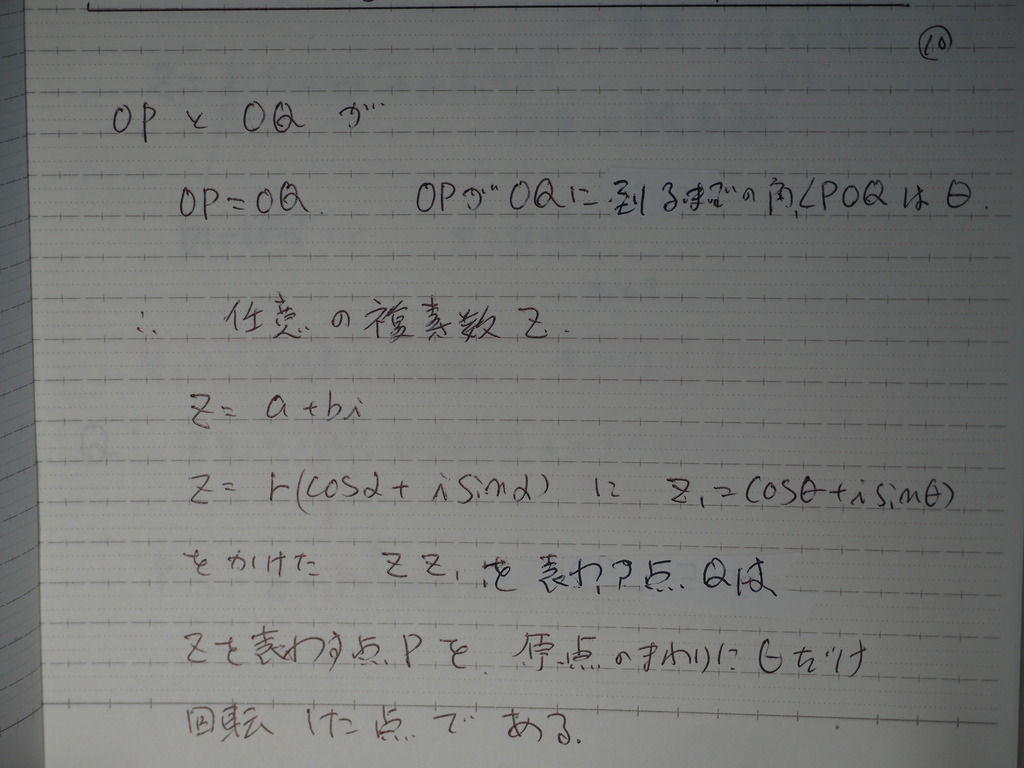 ⑩
OPとOQが
OP=OQ. OPがOQに到るまでの角∠POQはθ.
∴ 任意の複素数Z.
Z= a+bi
Z= r(cosα+ i sinα) に Z₁=cosθ+i sinθ)
をかけた ZZ₁を表わす点.Qは
Zを表わす点Pを 原点のまわりにθだけ
回転した点である.